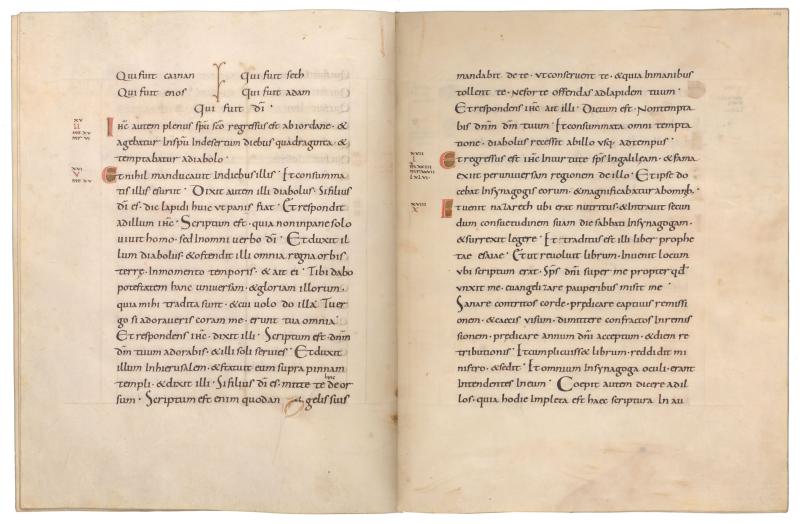 Qui fuit cainan Qui fuit seth
Qui fuit enos Qui fuit adam
Qui fuit dī·
XV
II
Ihc autem plenus spū scō regressus est ab iordane· &
agebatur in spū in desertum diebus quadraginta· &
temptabatur a diabolo·
XVI
V
Et nihil manducavit in diebus illis· Et consumma
tis illis esuriit· Dixit autem illi diabolus· Si filius
dī es· dic lapidi huic ut panis fiat· Et respondit
ad illum ihc· Scriptum est· quia non in pane solo
uiuit homo· sed in omni uerbo dī· Et duxit il
lum diabolus· & ostendit illi omnia regna orbis
terrę· in momento temporis· & ait ei· Tibi dabo
potestatem hanc uniuersam· & gloriam illorum·
quia mihi tradita sunt· & cui uolo do illa· Tu er
go si adoraueris coram me· erunt tua omnia·
Et respondens ihc· dixit illi· Scriptum est· dnm
dm tuum adorabis· & illi soli seruies· Et duxit
illum in hierusalem· & statuit eum supra pinnam
templi· & dixit illi· Si filius dī es· mitte te hinc deor
sum· Scriptum est enim quod an gelis suis
mandabit de te· ut conseruent te· & quia in manibus
tollent te· ne forte offendas ad lapidem tuum·
Et respondens ihc ait illi· Dictum est· Non tempta
bis dnm dm tuum· Et consummata omni tempta
tione· diabolus recessit ab illo usq; ad tempus·
XVII
I
Et regressus est ihc in uirtute sps in galileam· & fama
exiit per uniuersam regionem de illo· Et ipse do
cebat in synagogis eorum· & magnificabatur ab omnib·
XVIII
X
Et uenit nazareth ubi erat nutritus· & intrauit secun
dum consuetudinem suam die sabbati in synagogam·
& surrexit legere· Et traditus est illi liber prophe
tae esaiae· Et ut reuoluit librum· inuenit locum
ubi scriptum erat· Sps dni super me propter qd
unxit me· euangelizare pauperibus misit me·
Sanare contritos corde· predicare captiuis remissi
onem· & caecis uisum· dimittere confractos in remis
sionem· predicare annum dni acceptum· & diem re
tributionis· Et cum plicuisset librum· reddidit mi
nistro· & sedit· Et omnium in synagoga oculi· erant
intendentes in eum· Coepit autem dicere ad il
los· quia hodie impleta est haec scriptura in au